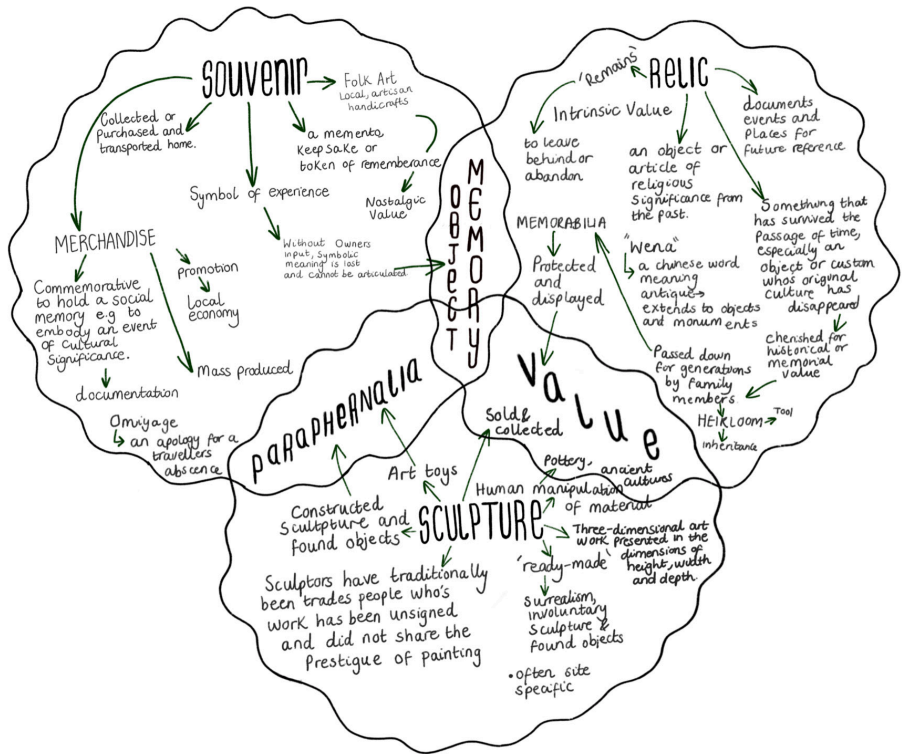 SOUVENIR
Folk Art
Local, artisan
handicrafts
Collected or
Purchased and
transported home.
a memento,
keepsake or
token of rememberance
Nostalgic
Value
Symbol of experience
Without Owners
input, Symbolic
meaning is lost
and cannot be articulated
MERCHANDISE
promotion
Local
economy
Commemorative
to hold a social
memory e.g to
embody an event
of cultural
Significance.
documentation
Mass produced
Omiyage
an apology for a
travellers
abscence
OBJECT
MEMORY
RELIC
"Remains"
Intrinsic Value
to leave
behind or
abandon
an object or
article of
religious
significance from
the past.
documents
events and
Places for
future reference
Something that
has survived the
Passage of time,
especially an
object or custom
whos original
culture has
disappeared
MEMORABILIA
Protected
and
displayed
"Wena"
a chinese word
meaning
antique
extends to objects
and monuments
Cherished for
historical or
memorial
value
Passed down
for generations
by family
members
HEIRLOOM
Tool
inheritance
PARAPHERNALIA
Value
Sold &
collected
SCULPTURE
Art toys
Constructed
Scultpture and
found objects
Pottery, ancient
cultures
Human manipulation
of material
Three-dimensional art
work presented in the
dimensions of
height, width
and depth.
"ready-made"
surrealism,
involuntary
sculpture &
found objects
• often site
specific
Sculptors have traditionally
been trades people who's
work has been unsigned
and did not share the
Prestigue of painting